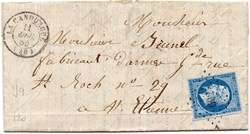 LA CANOURGUE
Monsieur
Monsieur Brunel
fabricant d'armes Gde rue
St Roch nº 29
a St Etienne